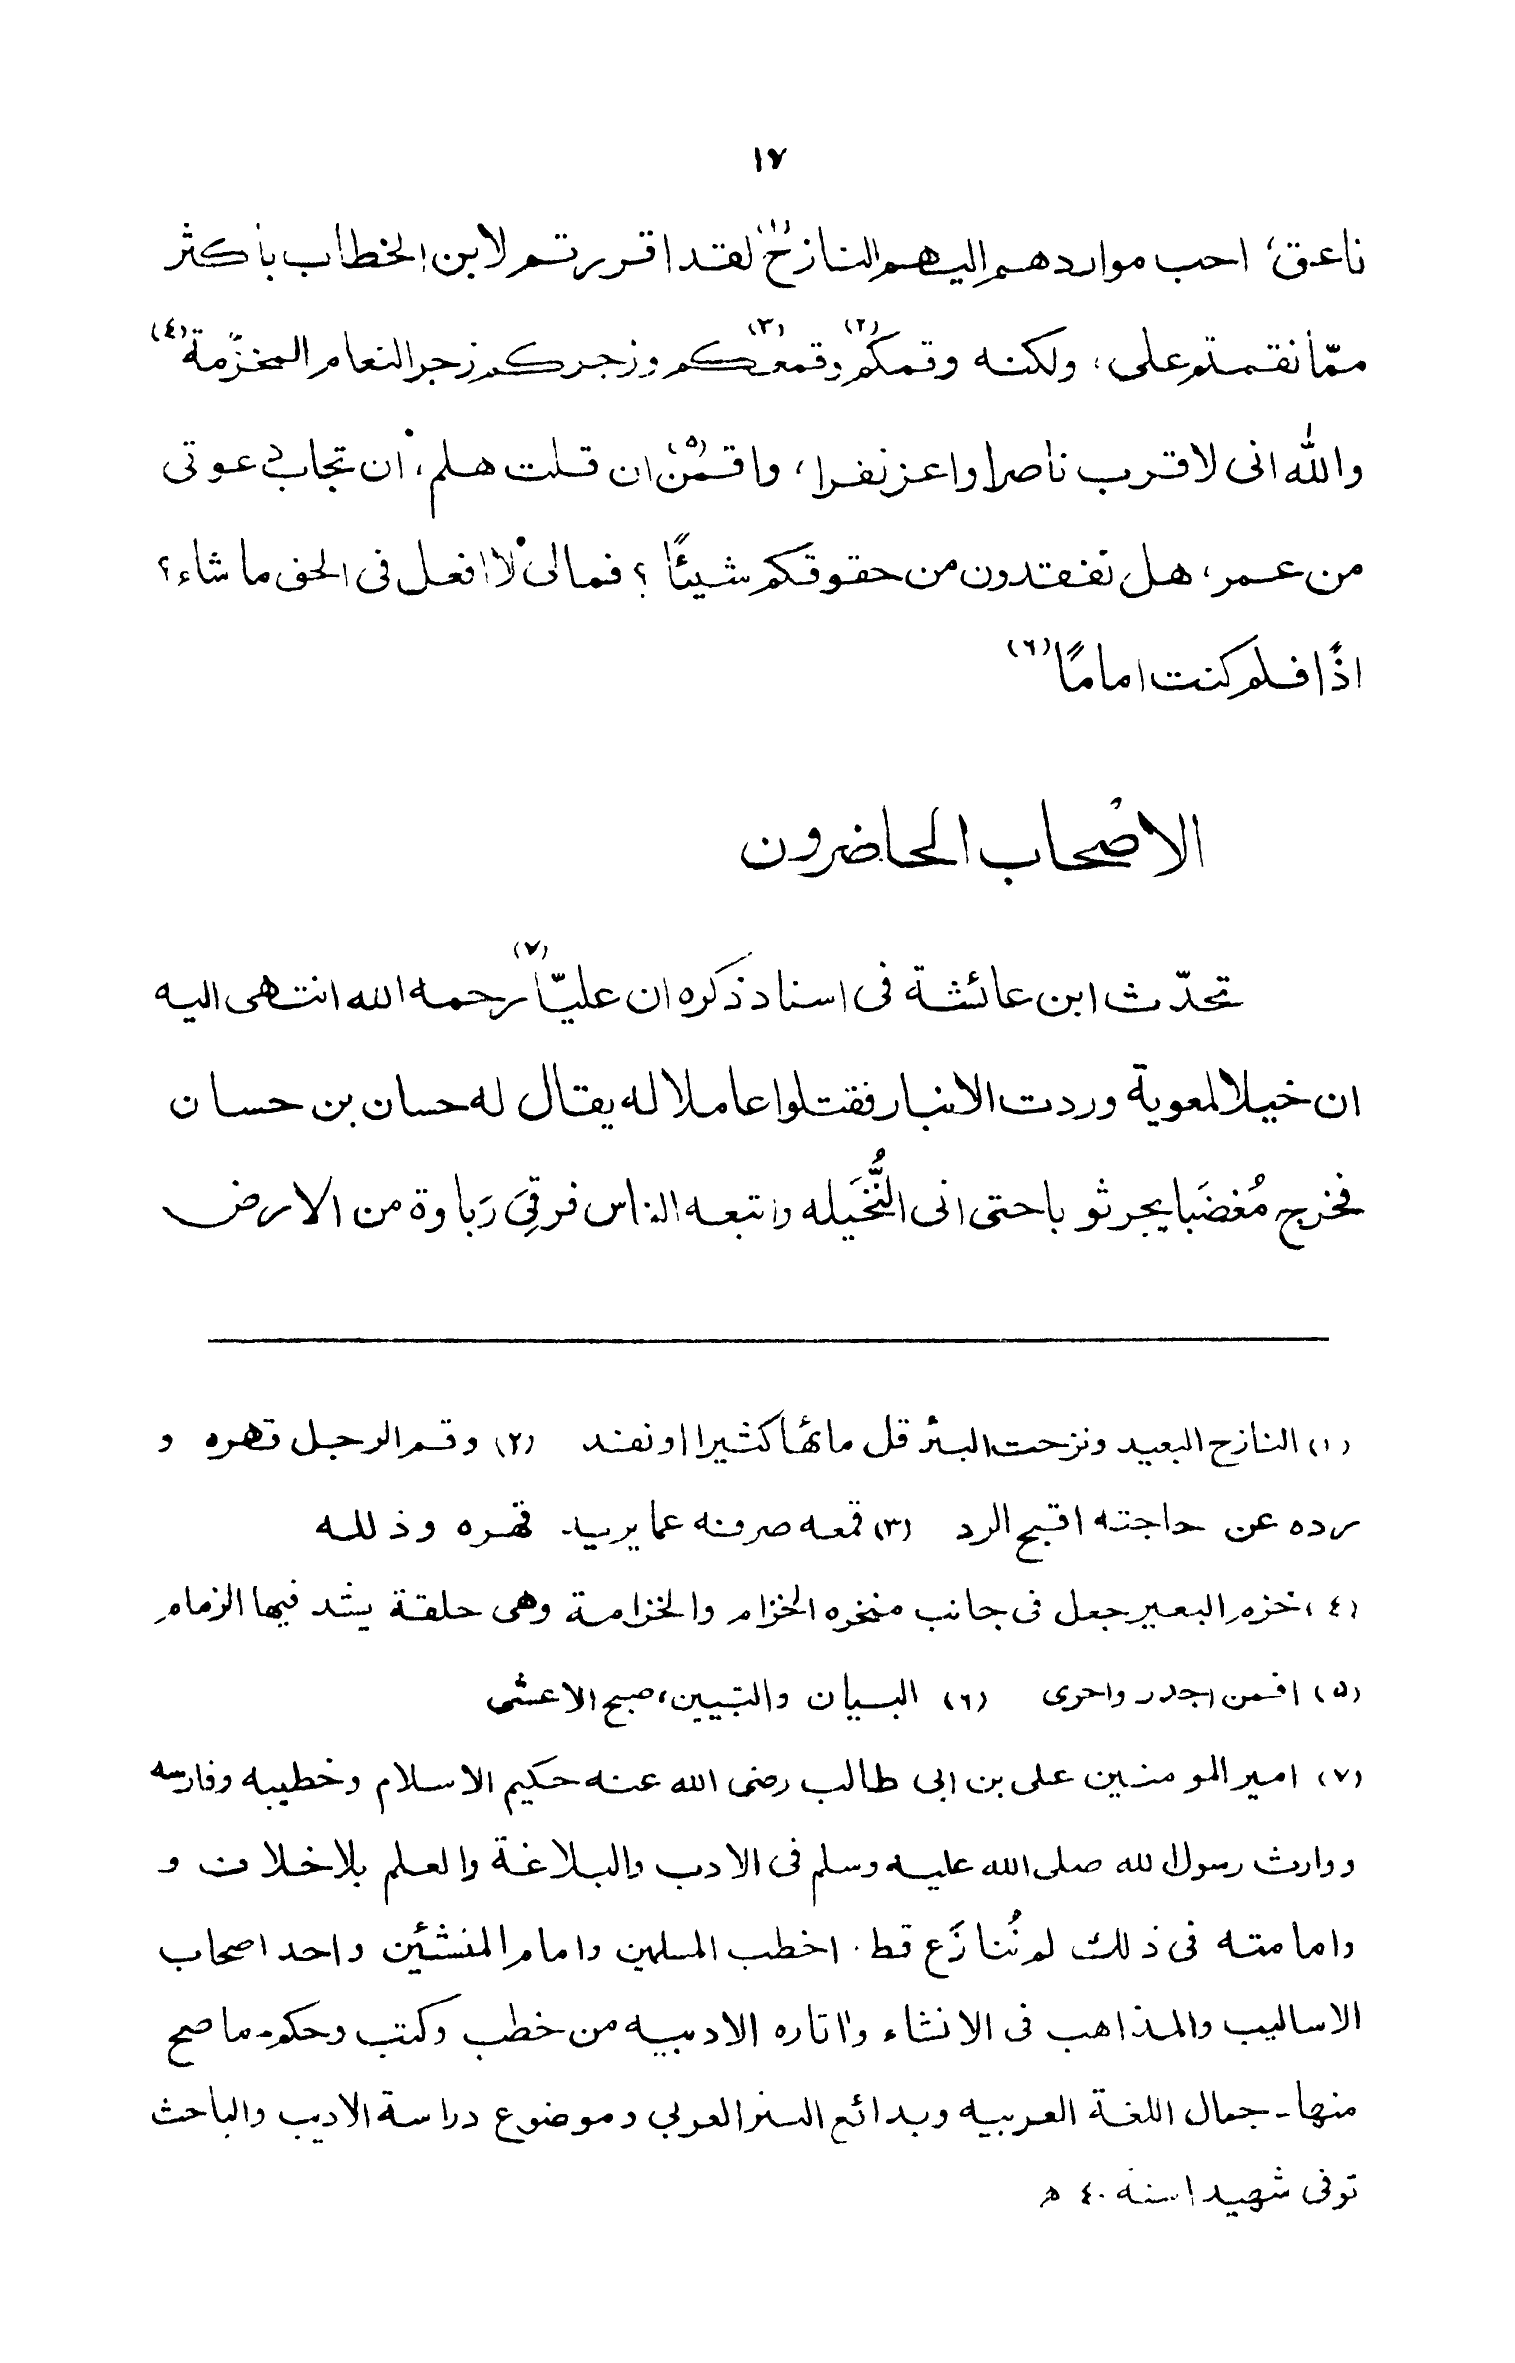 ١٧
ناعق، احب مواردهم اليهم النازح(١) لقد اقررتم لابن الخطاب بأكثر
ممّا نقمتم على، ولكنه وقمكم(٢) وقمعكم(٣) وزجركم زجر النعام المخزّمة(٤)
والله انى لاقرب ناصرا واعز نفرا، واقمن(٥) ان قلت هلم، ان تجاب دعوتى
من عمر، هل تفقدون من حقوقكم شيئًا؟ فمالى لا افعل فى الحق ما شاء؟
اذًا فلم كنت امامًا(٦)
الاصحاب الحاضرون
تحدّث ابن عائشة فى اسناد ذكره ان عليّا(٧) رحمه الله انتهى اليه
ان خيلا لمعوية وردت الانبار فقتلوا عاملا له يقال له حسان بن حسان
فخرج مُغضَبا يجر ثوبا حتى اتى النُّخَيله واتبعه الناس فرقِىَ رَباوة من الارض
(١) النازح البعيد ونزحت البئر قل مائها كثيرا او نفند (٢) وقم الرجل قهره و
رده عن حاجته اقبح الرد (٣) قمعه صرفنه عما يريد. قهره وذلله
(٤) خزم البعير جعل فى جانب منخره الخزام والخزامة وهى حلقة يشد فيها الزمام
(٥) اقمن اجدر واحرى (٦) البيان والتبيين، صبح الاعشى
(٧) امير المومنين على بن ابى طالب رضى الله عنه حكيم الاسلام وخطيبه وفارسه
ووارث رسول الله صلى الله عليه وسلم فى الادب والبلاغة والعلم بلاخلاف و
وامامته فى ذلك لم نُنازَع قط. اخطب المسلمين وامام المنشئين واحد اصحاب
الاساليب والمذاهب فى الانشاء واثاره الادبيه من خطب وكتب وحكم۔ ما صح
منها۔ جمال اللغة العربيه وبدائع النثر العربى وموضوع دراسة الاديب والباحث
توفى شهيدا سنه ٤٠ ھ